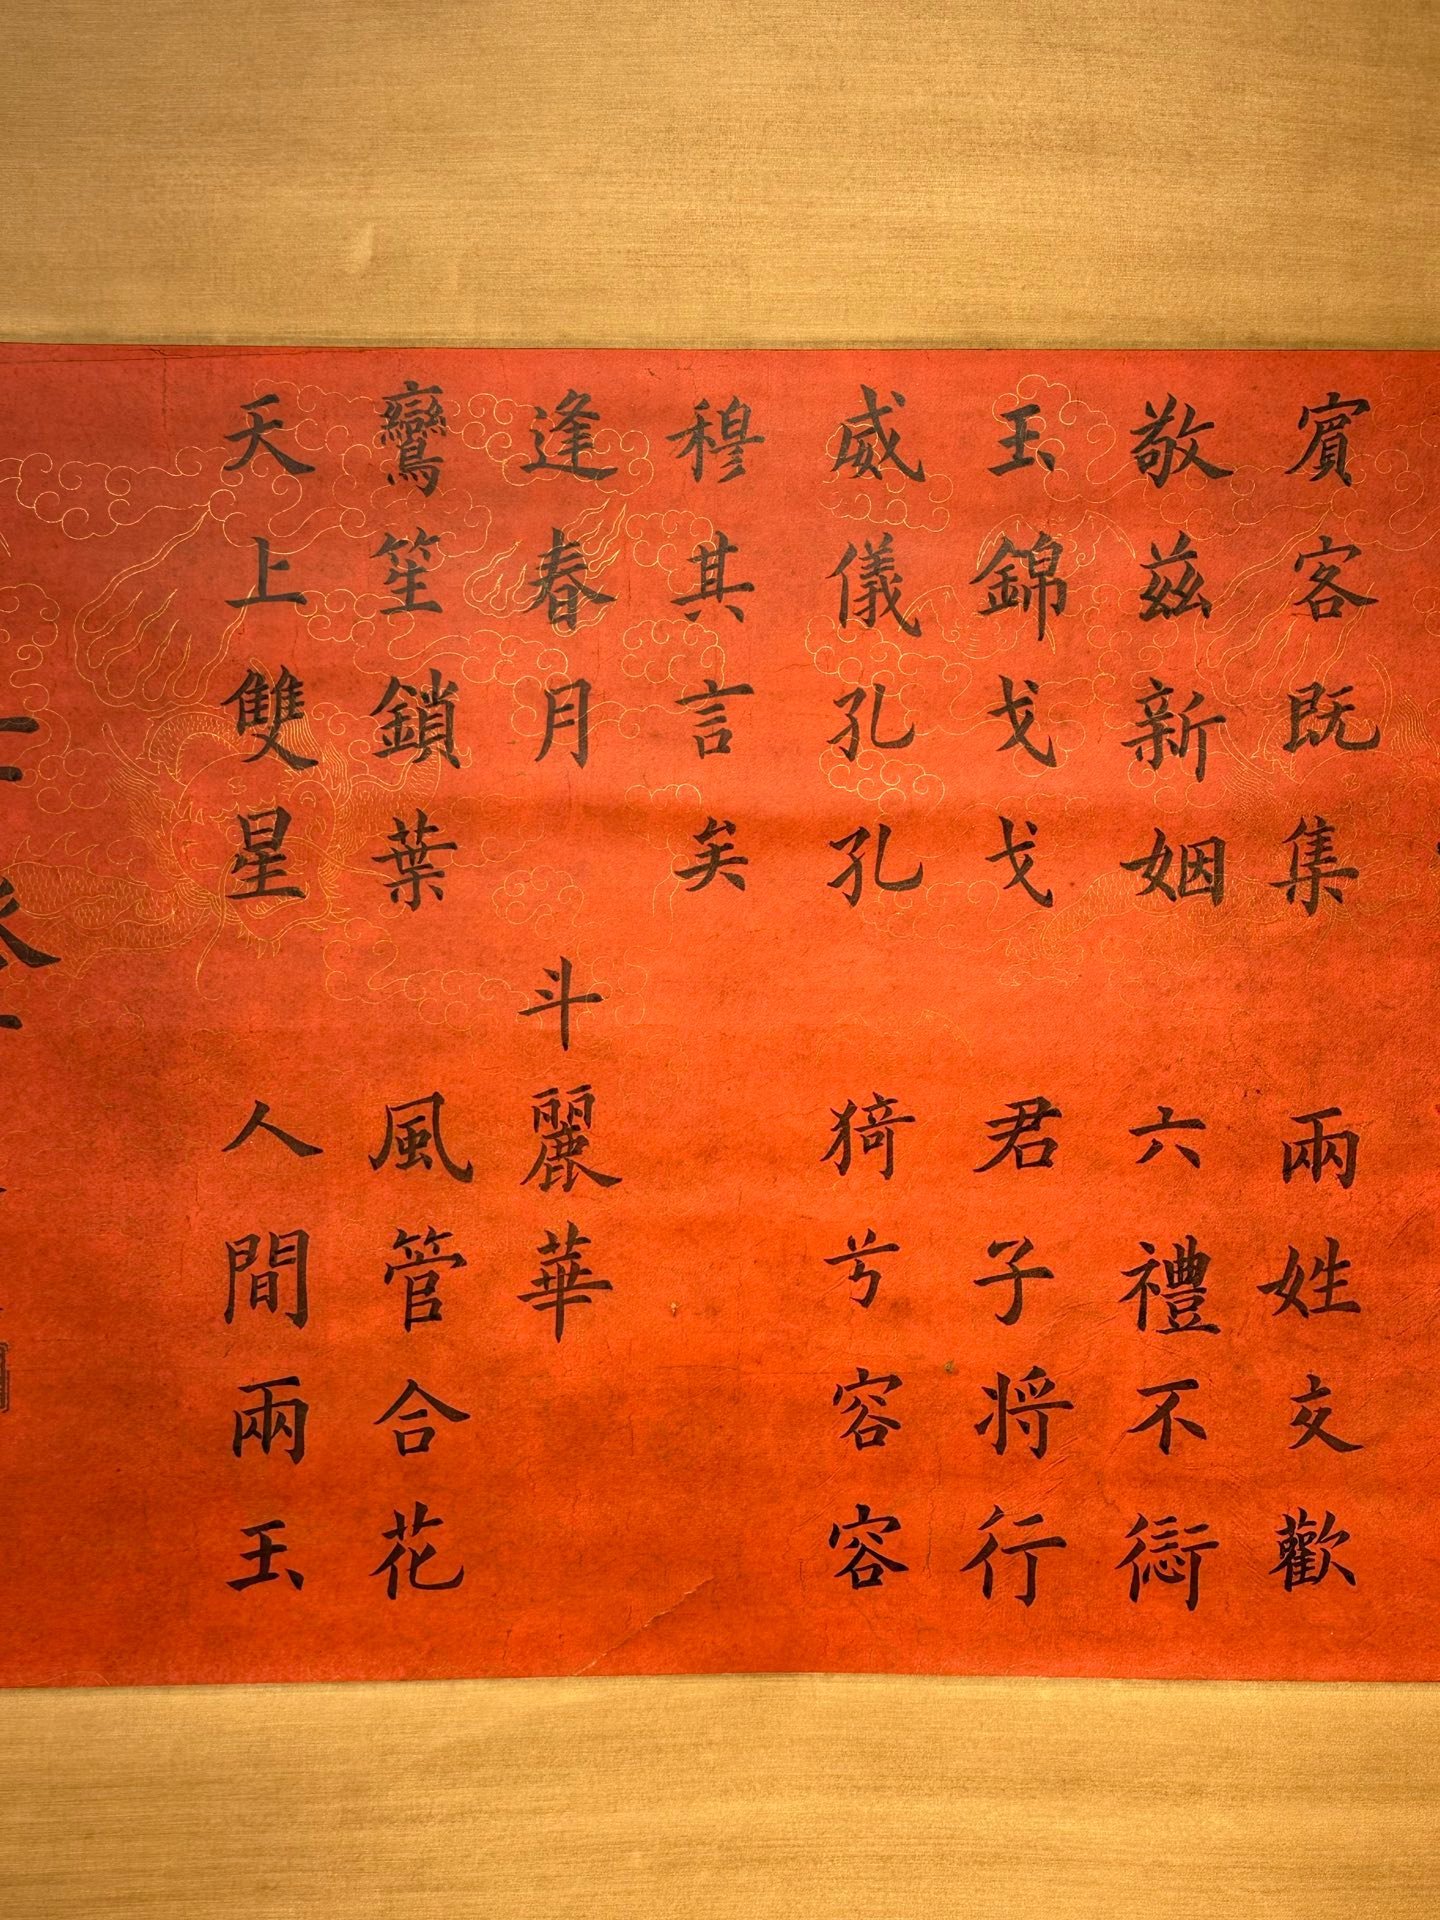 賓客既集　兩姓交歡
敬茲新姻　六禮不愆
玉錦戔戔　君子將行
威儀孔孔　猗兮容容
穆其言矣
逢春月　斗麗華
鸞笙鎖葉　風管合花
天上雙星　人間兩玉